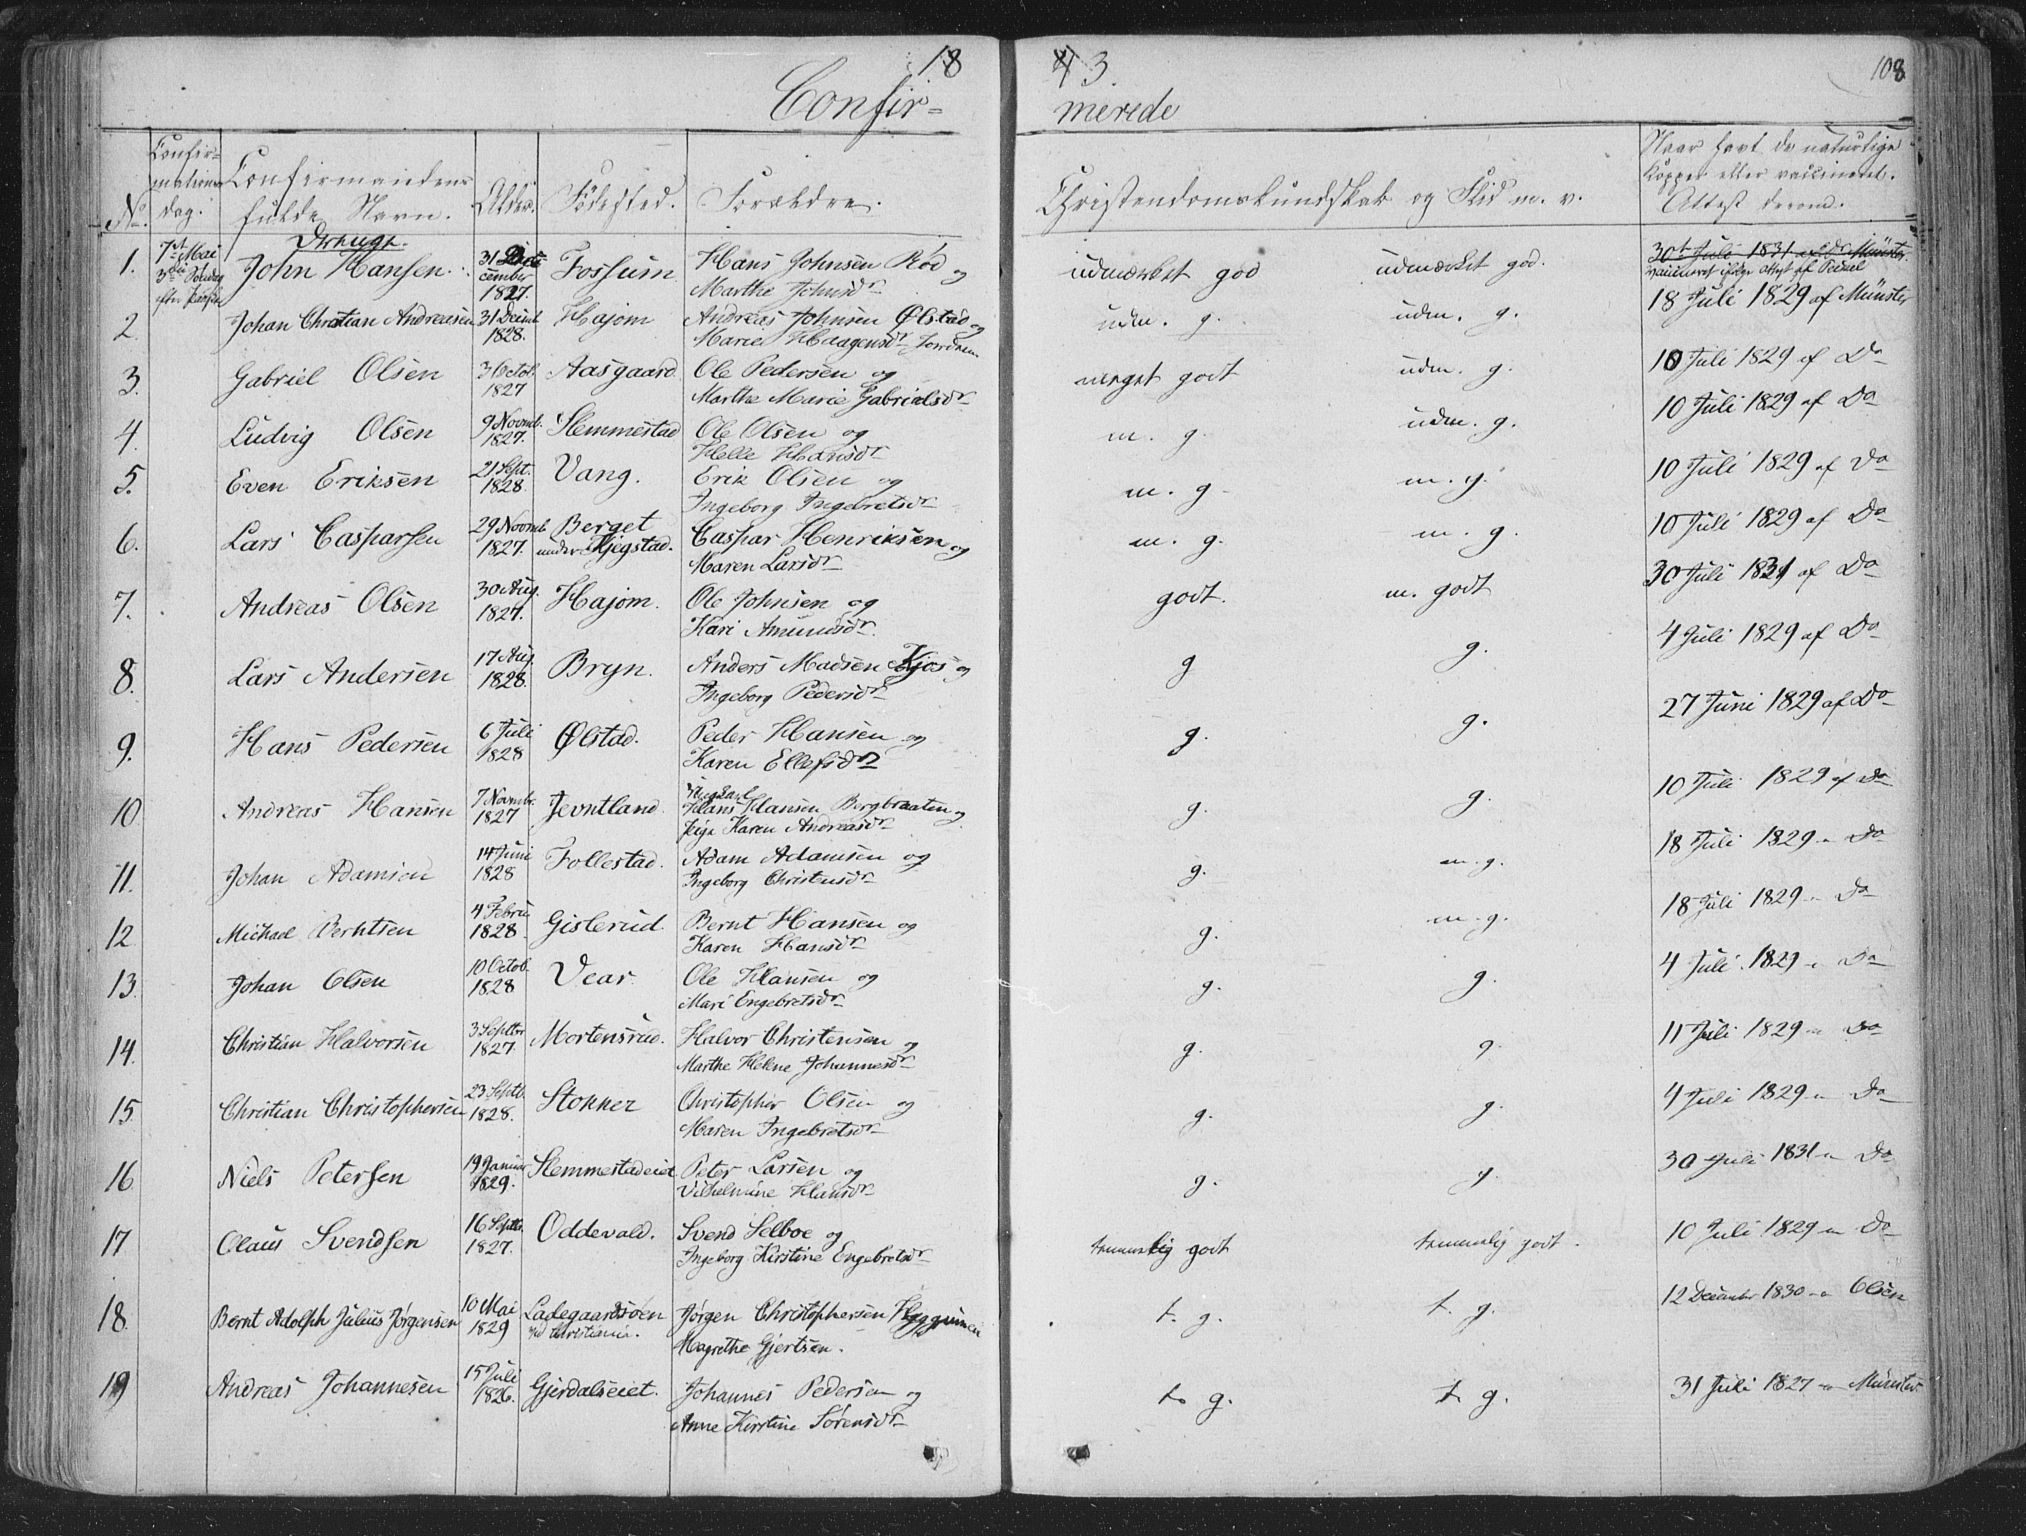 18 43. 108
Confir= merede
No. Confir=
mations
dag. Confirmandens
fulde Navn. Alder. Födested. Forældre. Christendomskundskab og Flid m. v. Naar havt de naturlige
Kopper eller vaccineret.
Attest derom.
Drenge.
1. 7de Mai
3die Søndag
efter Paaske John Hansen. 31 De
cember
1827. Fossum Hans Johnsen Rød og
Marthe Johnsdr udmærket god udmærket god. 30t Juli 1831 af Dr Münster.
vaccineret ifølge attest af
2. Johan Christian Andreasen 31 Decmb
1828. Hajom Andreas Johnsen Ølstad og
Marie Haagensdr udm. g. udm. g. 18 Juli 1829 af Münster
3. Gabriel Olsen 3 Octob.
1827 Aasgaard. Ole Pedersen og
Marthe Marie Gabrielsdr meget godt udm. g. 10 Juli 1829 af Do
4. Ludvig Olsen 9 Novmb.
1827. Slemmestad Ole Olsen og
Helle Hansdr m. g. udm. g. 10 Juli 1829 af Do
5. Even Eriksen 21 Sept.
1828. Vang. Erik Olsen og
Ingeborg Ingebretsdr m. g. m. g. 10 Juli 1829 af Do
6. Lars Caspersen 29 Novmb.
1827. Berget
under Kjegstad. Caspar Henriksen og
Maren Larsdr m. g. m. g. 10 Juli 1829 af Do
7. Andreas Olsen 30 Aug.
1827. Hajom. Ole Johnsen og
Kari Amundsdr. godt. m. godt 30 Juli 1831 af Do
8. Lars Andersen 17 Aug.
1828. Bryn. Anders Madsen Kjos og
Ingeborg Pedersdr g g. 4 Juli 1829 af Do
9. Hans Pedersen 6 Juli
1828 Ølstad. Peder Hansen og
Karen Ellefsdr g. g. 27 Juni 1829 af Do
10 Andreas Hansen 7 Novmbr.
1827 Jevntland. Hans Hansen Bergbraaten og
Pige Karen Andreasdr g. g. 10 Juli 1829 af Do
11. Johan Adamsen 14 Juni
1828 Follestad. Adam Adamsen og
Ingeborg Christensdr g. m. g. 18 Juli 1829 " Do
12 Michael Berntsen 4 Febru.
1828. Gisterud. Bernt Hansen og
Karen Hansdr g. m. g. 18 Juli 1829 " Do
13. Johan Olsen 10 Octob.
1828 Vear. Ole Hansen og
Mari Engebretsdr g. g. 4 Juli 1829 " Do
14. Christian Halvorsen 3 Septbr
1827. Mortensrud. Halvor Christensen og
Marthe Helene Johannesdr g. g. 11 Juli 1829 " Do
15 Christian Christophersen 23 Septb.
1828. Stokker Christopher Olsen og
Maren Ingebretsdr g. g. 4 Juli 1829 " Do
16. Niels Petersen 19 Januar
1829. Slemmestadeiet Peter Larsen og
Vilhelmine Hansdr g. g. 30 Juli 1831 " Do
17 Olaus Svendsen 16 Septb.
1827. Oddevald. Svend Selboe og
Ingeborg Kirstine Engebretsdr temmelig godt temmelig godt. 10 Juli 1829 " Do
18. Bernt Adolph Julius Jørgensen 10 Mai
1829 Ladegaardsøen
ved Christiania. Jørgen Christophersen Hyggumen
Magrethe Gjertsen. t. g. t. g. 12 December 1830 " Olsen
19 Andreas Johannesen 15 Juli
1826. Gjerdalseiet. Johannes Pedersen og
Anne Kirstine Sørensdr t. g. t. g. 31 Juli 1827 " Münster